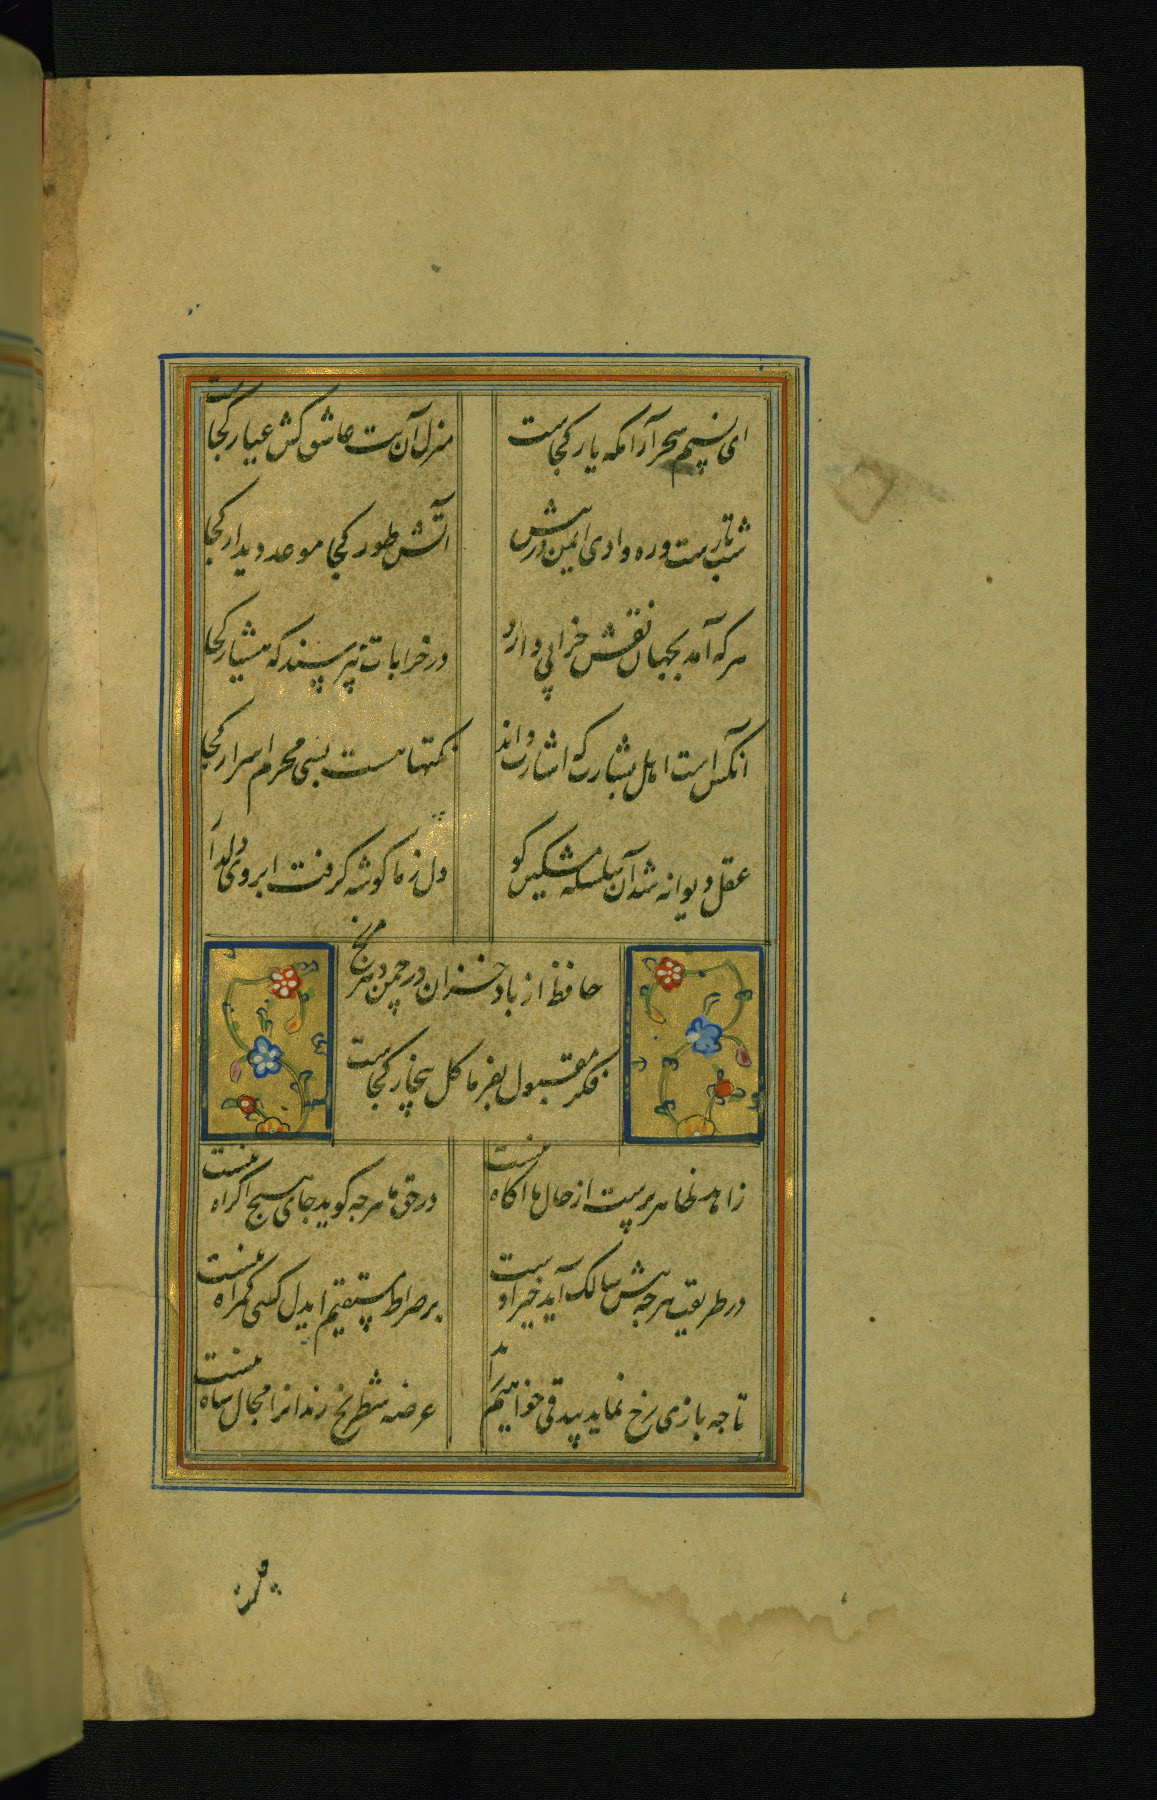 ای نسیم سحر آرامگه یار کجاست
منزل آن مت عاشق کش عیار کجاست
شب تارست و ره وادی ایمن در پیش
آتش طور کجا موعد دیدار کجا
هر که آمد بجهان نقش خرابی دارد
در خرابات بپرسند که هشیار کجا
آنکس است اهل بشارت که اشارت داند
نکتها هست بسی محرم اسرار کجا
عقل دیوانه شد آن سلسله مشکین کو
دل ز ما کوشه کرفت ابروی دلدار
حافظ از باد خزان در چمن دهر مرنج
فکر معقبول بفرما کل بیخار کجاست
زاهد ظاهر پرست از حال ما اکاه نیست
در حق ما هرچه کوید جای هیچ اکراه نیست
در طریقت هرچه پیش سالک آید خیر اوست
بر صراط مستقیم ایدل کسی کمراه نیست
تا چه بازی رخ نماید بیدقی خواهیم
عرصه شطرنج رندانرا مجال شاه نیست
چیست